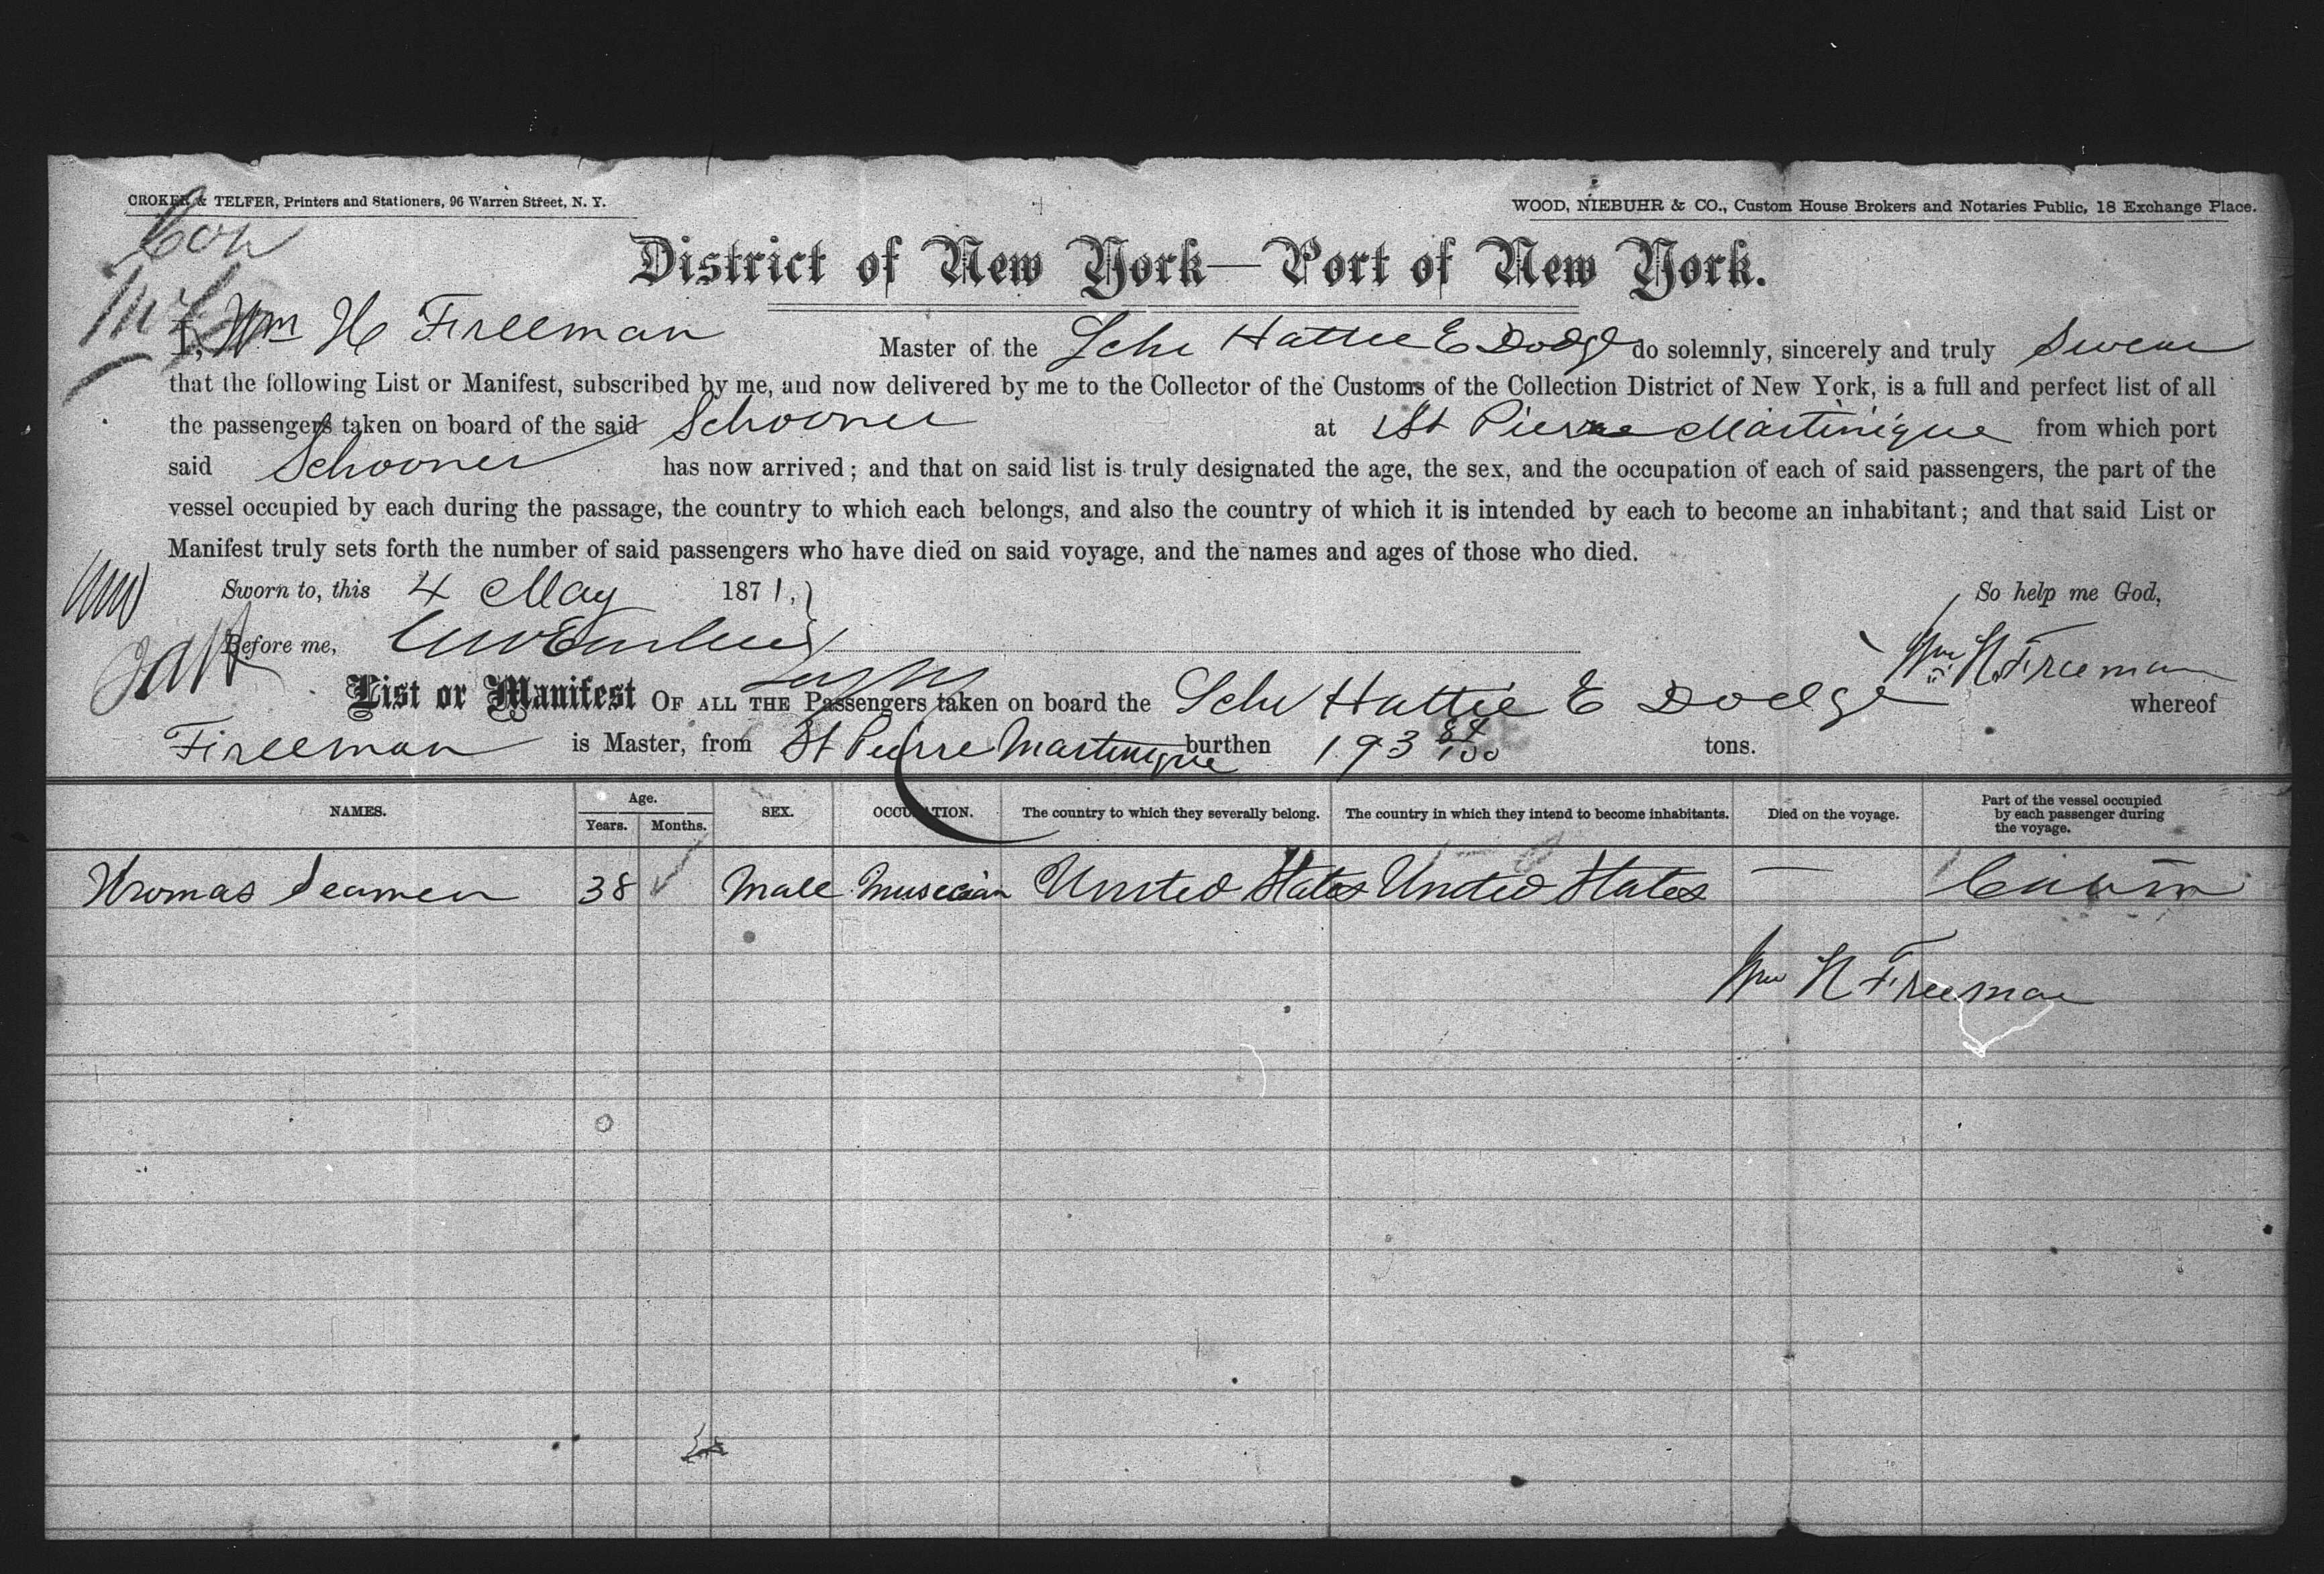 CROKER & TELFER, Printers and Stationers, 96 Warren Street, N. Y.
WOOD, NIEBUHR & CO., Custom House Brokers and Notaries Public, 18 Exchange Place.
District of New York—Port of New York.
I, Wm H Freeman Master of the Schr Hattie E Dodge do solemnly, sincerely and truly Swear
that the following List or Manifest, subscribed by me, and now delivered by me to the Collector of the Customs of the Collection District of New York, is a full and perfect list of all
the passengers taken on board of the said Schooner at St Pierre Martinique from which port
said Schooner has now arrived; and that on said list is truly designated the age, the sex, and the occupation of each of said passengers, the part of the
vessel occupied by each during the passage, the country to which each belongs, and also the country of which it is intended by each to become an inhabitant; and that said List or
Manifest truly sets forth the number of said passengers who have died on said voyage, and the names and ages of those who died.
Sworn to, this 4 May 1871, So help me God,
Before me, Wm H Freeman
List or Manifest OF ALL THE Passengers taken on board the Schr Hattie E Dodge whereof
Freeman is Master, from St Pierre Martinique burthen 193 84/100 tons.
NAMES. Age. Years. Months. SEX. OCCUPATION. The country to which they severally belong. The country in which they intend to become inhabitants. Died on the voyage. Part of the vessel occupied by each passenger during the voyage.
Thomas Seamen 38 ✓ Male Musician United States United States — Cabin
Wm H Freeman